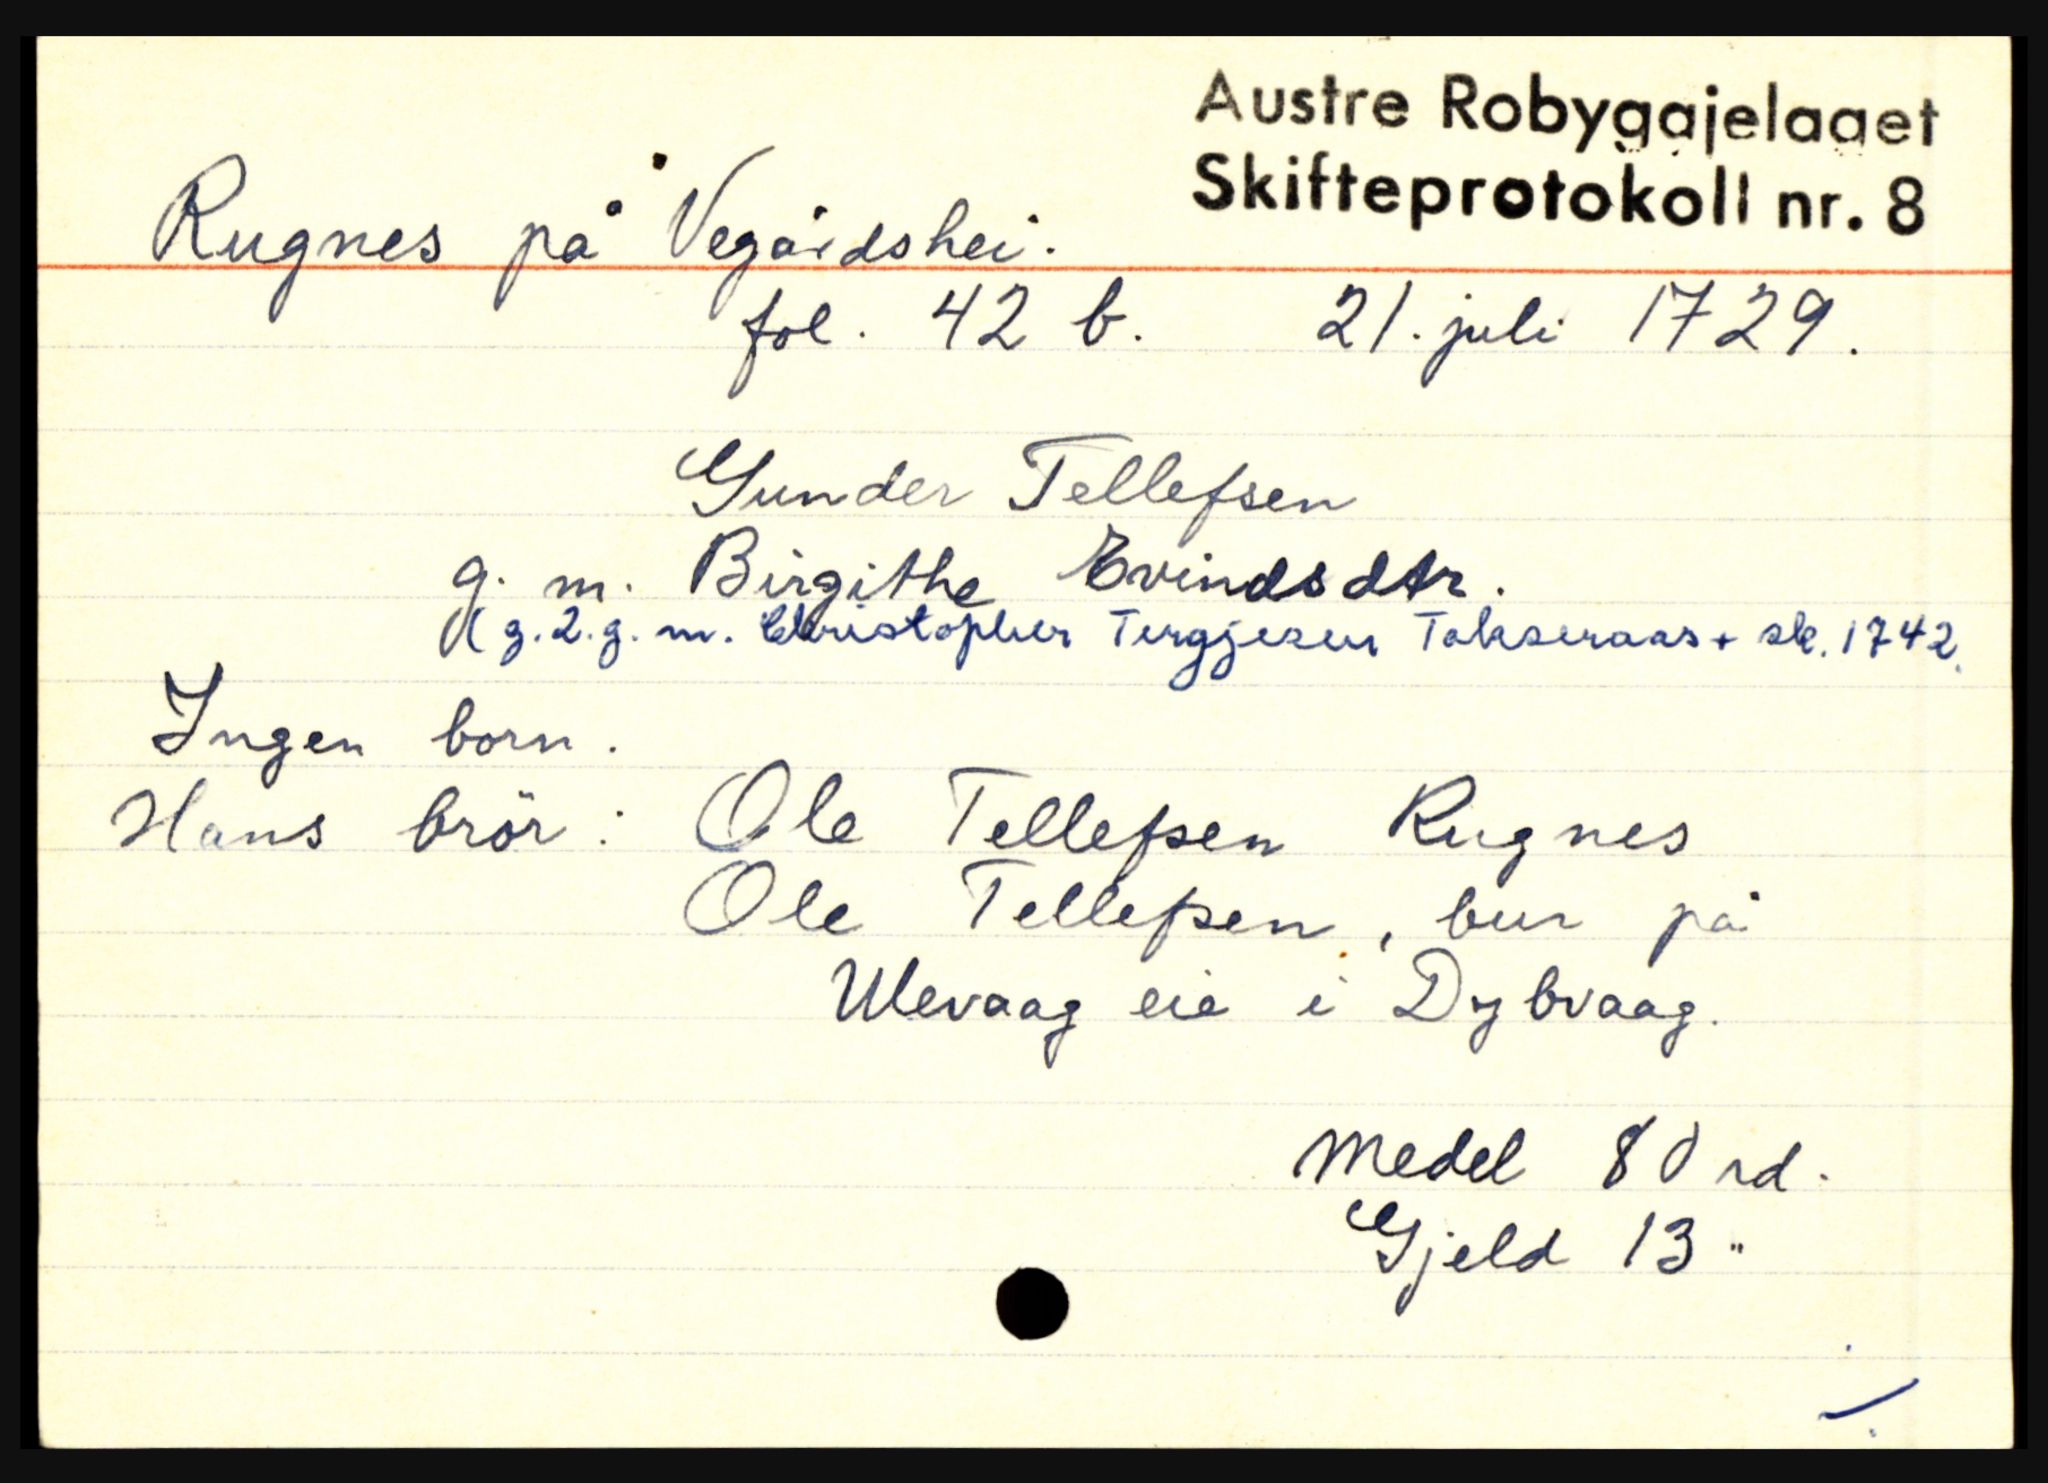 Austre Robygdjelaget
Skifteprotokoll nr. 8
Rugnes på Vegårdshei.
fol. 42 b. 21. juli 1729.
Gunder Tellefsen
g. m. Birgithe Evindsdtr.
(g.2.g. m. Christopher Tergjesen Takseraas + sk. 1742.
Ingen born.
Hans brör: Ole Tellefsen Rugnes
Ole Tellefsen, bur på
Ulevaag eie i Dybvaag.
Medel 80 rd.
Gjeld 13 "